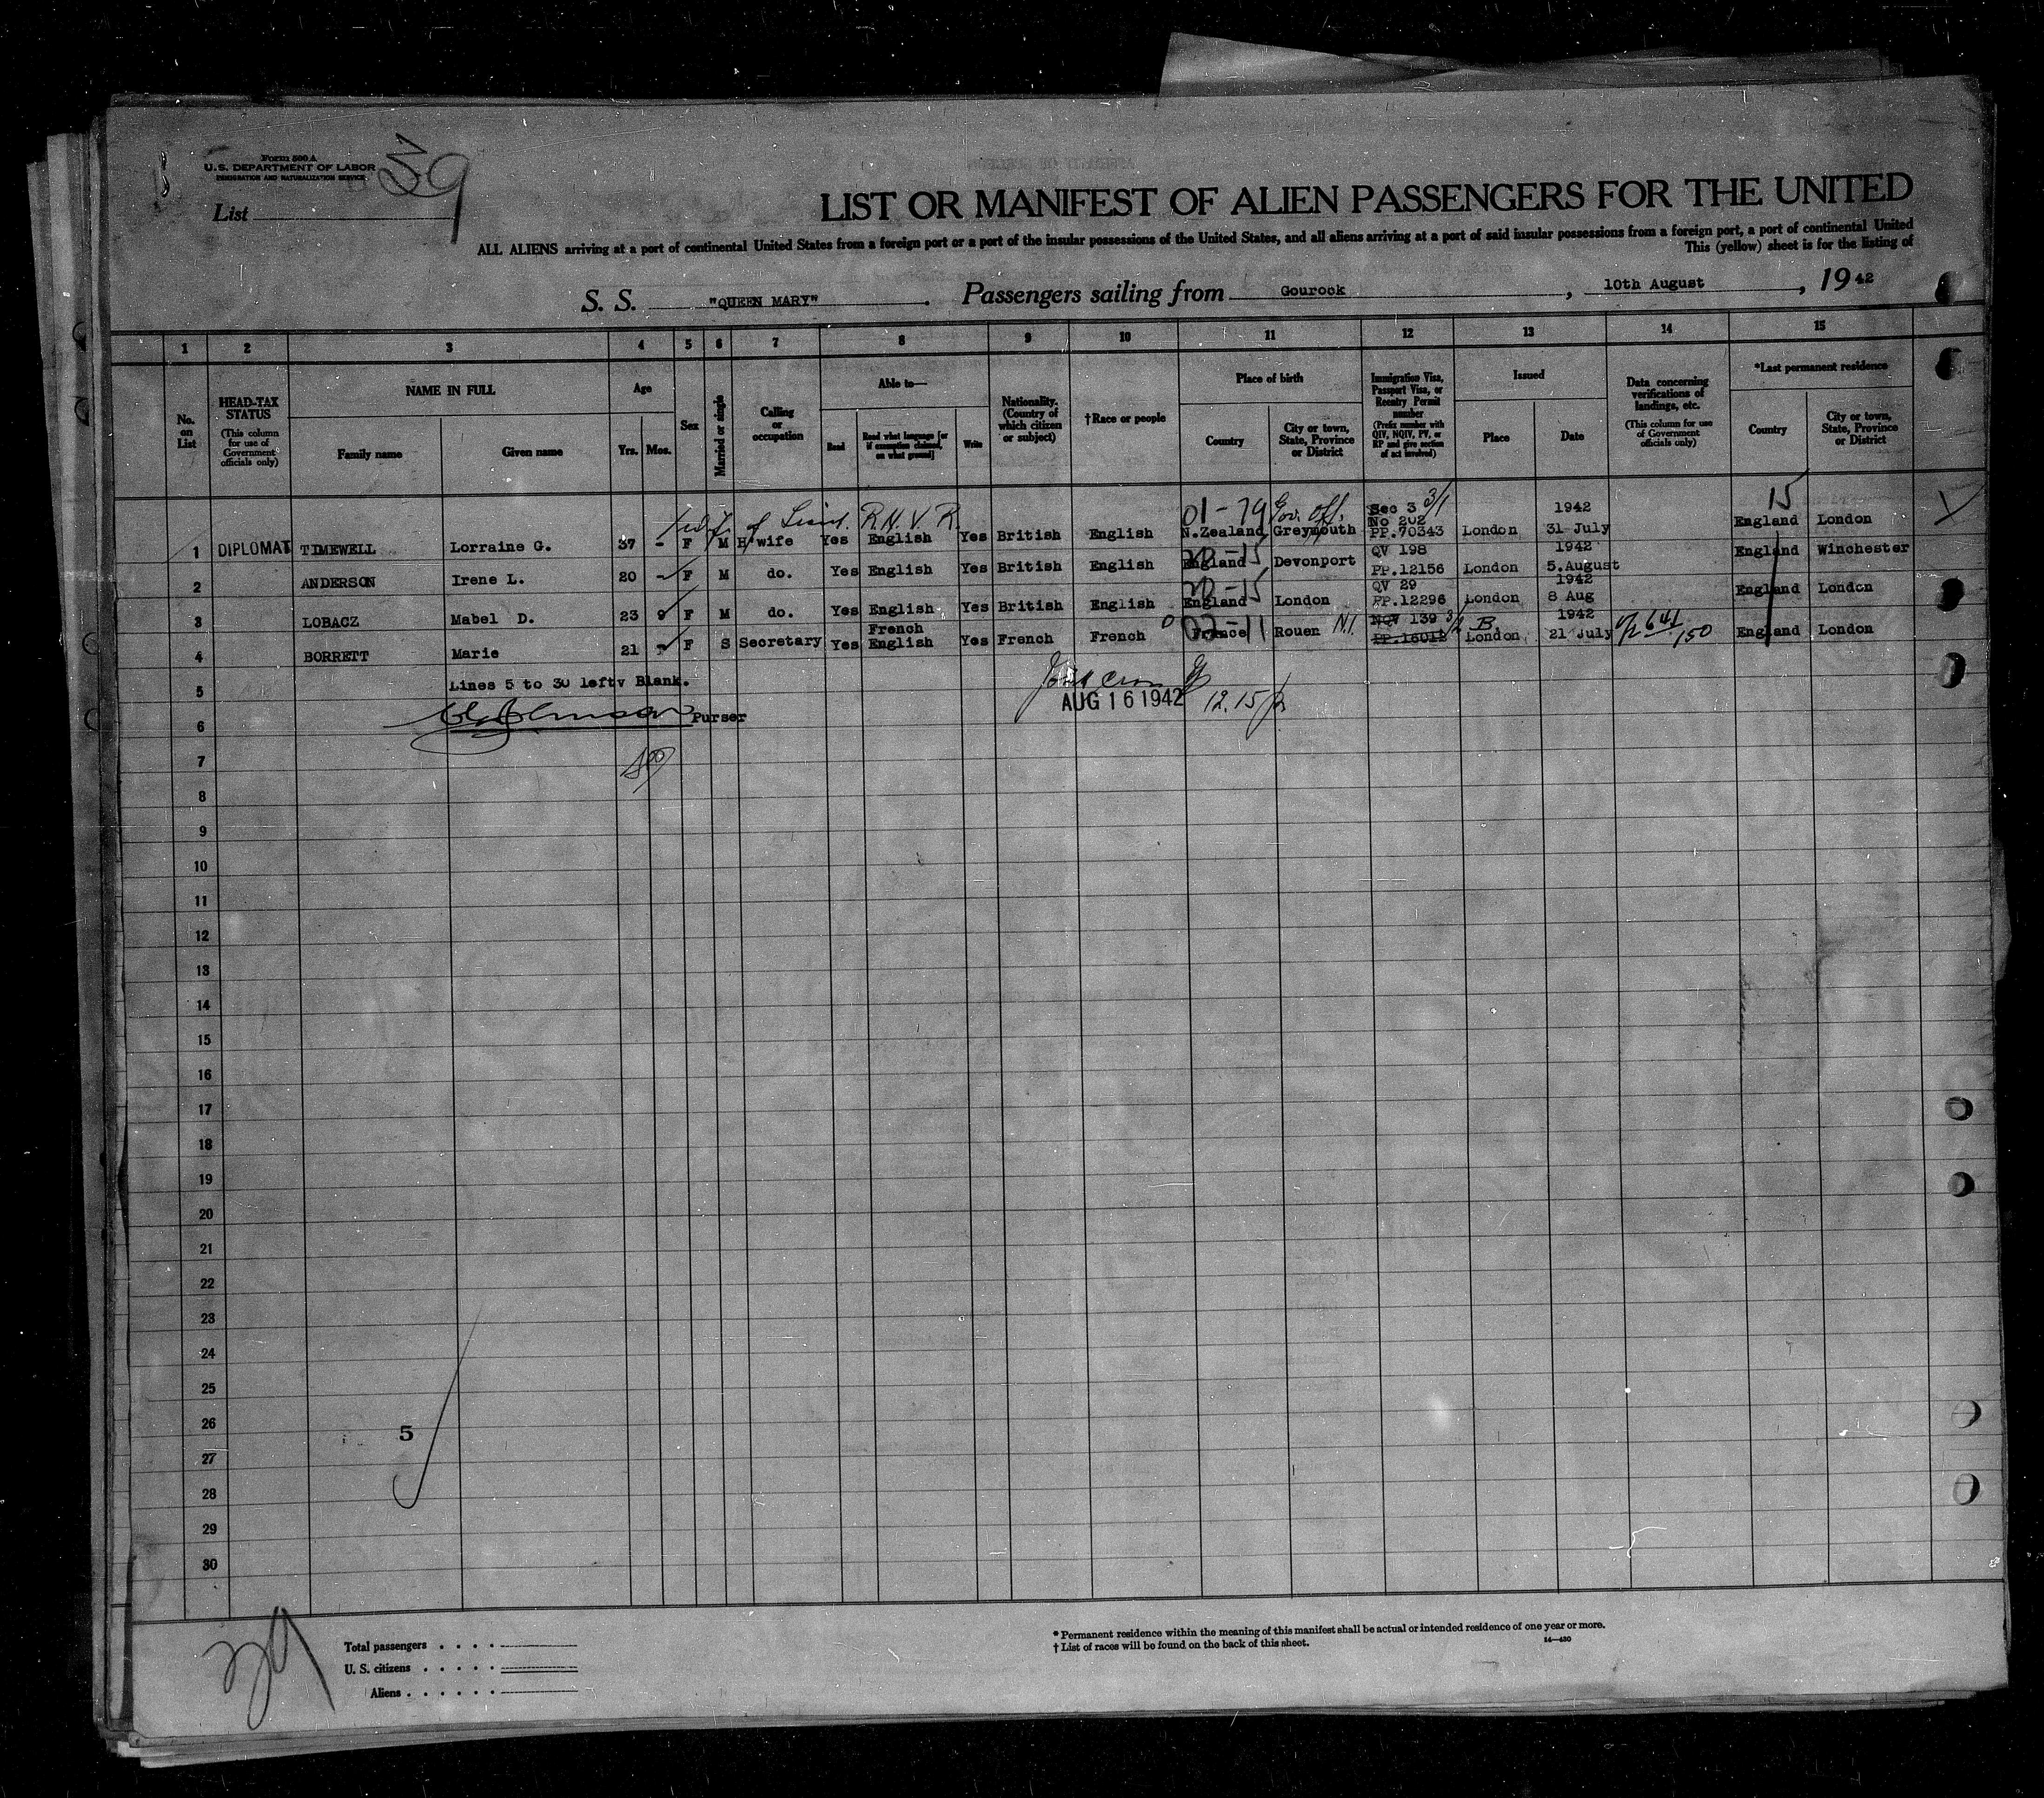 Form 500 A
U. S. DEPARTMENT OF LABOR
IMMIGRATION AND NATURALIZATION SERVICE
39
List
LIST OR MANIFEST OF ALIEN PASSENGERS FOR THE UNITED
ALL ALIENS arriving at a port of continental United States from a foreign port or a port of the insular possessions of the United States, and all aliens arriving at a port of said insular possessions from a foreign port, a port of continental United
This (yellow) sheet is for the listing of
S. S. "QUEEN MARY". Passengers sailing from Gourock, 10th August, 1942
1 2 3 4 5 6 7 8 9 10 11 12 13 14 15
No. on List
HEAD-TAX STATUS (This column for use of Government officials only)
NAME IN FULL
Family name Given name
Age
Yrs. Mos.
Sex
Married or single
Calling or occupation
Able to—
Read Read what language [or if exemption claimed, on what ground] Write
Nationality. (Country of which citizen or subject)
†Race or people
Place of birth
Country City or town, State, Province or District
Immigration Visa, Passport Visa, or Reentry Permit number (Prefix number with QIV, NQIV, PV, or RP and give section of act involved)
Issued
Place Date
Data concerning verifications of landings, etc. (This column for use of Government officials only)
*Last permanent residence
Country City or town, State, Province or District
wife of Lieut. R.N.V.R. 01-79 Gov. off. Sec 3 3/1 1942 15
No 202
1 DIPLOMAT TIMEWELL Lorraine G. 37 - F M H'wife Yes English Yes British English N.Zealand Greymouth PP.70343 London 31 July England London
QV 198 1942
2 ANDERSON Irene L. 20 - F M do. Yes English Yes British English England Devonport PP.12156 London 5.August England Winchester
QV 29 1942
3 LOBACZ Mabel D. 23 9 F M do. Yes English Yes British English England London PP.12296 London 8 Aug England London
French NQV 139 3/2 B 1942
4 BORRETT Marie 21 - F S Secretary Yes English Yes French French France Rouen PP.16012 London 21 July England London
5 Lines 5 to 30 leftv Blank.
AUG 16 1942 12.15
6 Purser
7
8
9
10
11
12
13
14
15
16
17
18
19
20
21
22
23
24
25
26 5
27
28
29
30
Total passengers
U. S. citizens
Aliens
* Permanent residence within the meaning of this manifest shall be actual or intended residence of one year or more.
† List of races will be found on the back of this sheet.
14—430